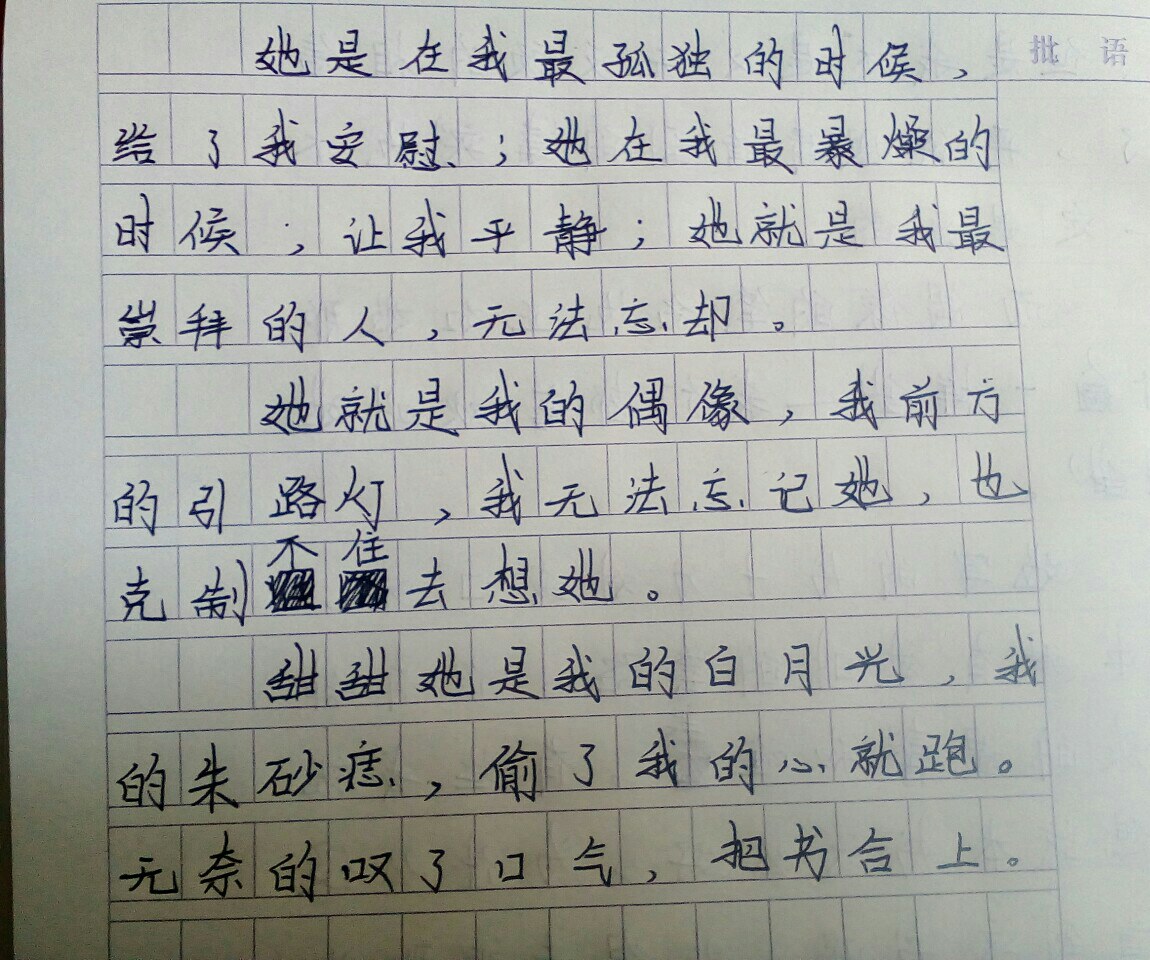 她是在我最孤独的时候，
批语
给了我安慰；她在我最暴燥的
时候；让我平静；她就是我最
崇拜的人，无法忘却。
她就是我的偶像，我前方
的引路灯，我无法忘记她，也
克制不住去想她。
甜甜她是我的白月光，我
的朱砂痣，偷了我的心就跑。
无奈的叹了口气，把书合上。